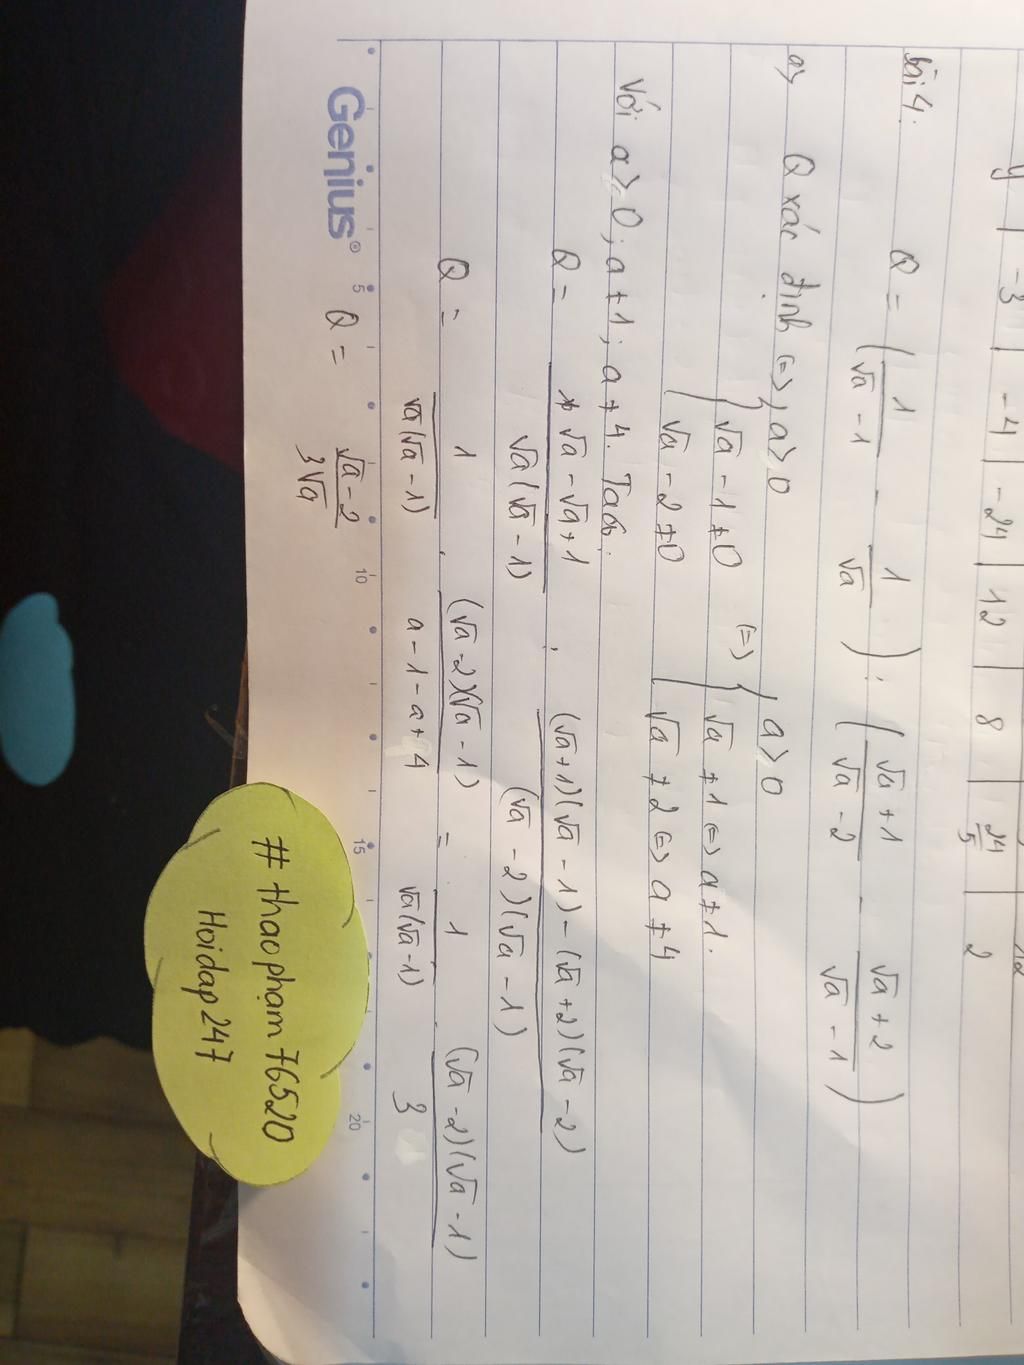 y | -3 | -4 | -24 | 12 | 8 | 24/5 | 2
bài 4.
Q = (1/(√a - 1) - 1/√a) : ((√a + 1)/(√a - 2) - (√a + 2)/(√a - 1))
a> Q xác định <=> { a > 0
√a - 1 ≠ 0
√a - 2 ≠ 0
<=> { a > 0
√a ≠ 1 <=> a ≠ 1.
√a ≠ 2 <=> a ≠ 4
Với a > 0; a ≠ 1; a ≠ 4. Ta có.
Q = (√a - √a + 1)/(√a(√a - 1)) : ((√a+1)(√a - 1) - (√a + 2)(√a - 2))/((√a - 2)(√a - 1))
Q = 1/(√a(√a - 1)) . ((√a - 2)(√a - 1))/(a - 1 - a + 4) = 1/(√a(√a - 1)) . ((√a - 2)(√a - 1))/3
Q = (√a - 2)/(3√a)
Genius® 5 10 15 20
# thaophạm 76520
Hoidap 247